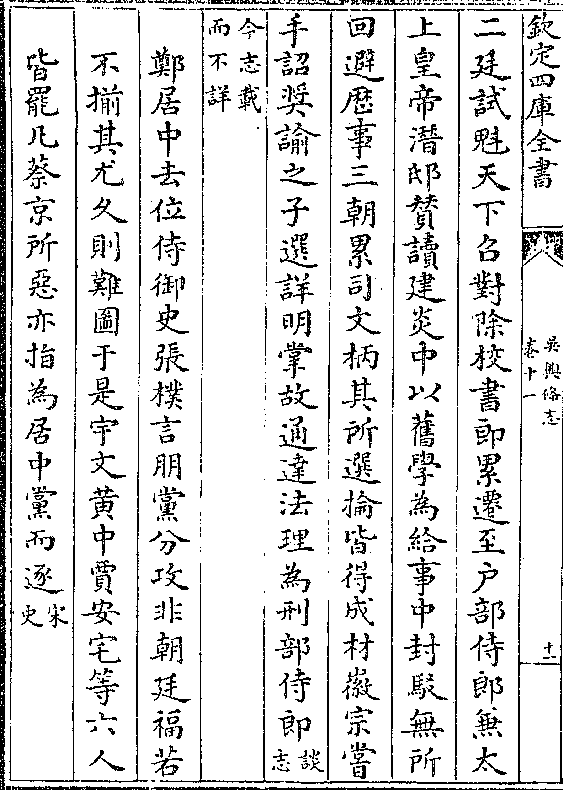 欽定四庫全書
吳興備志
卷十一
十二
二廷試魁天下召對除校書郎累遷至户部侍郎兼太
上皇帝潛邸賛讀建炎中以舊學為給事中封駁無所
回避歴事三朝累司文柄其所選掄皆得成材徽宗嘗
手詔奨諭之子選詳明掌故通達法理為刑部侍郎談
志
今志載
而不詳
鄭居中去位侍御史張樸言朋黨分攻非朝廷福若
不揃其尤久則難圖于是宇文黄中賈安宅等六人
皆罷凡蔡京所惡亦指為居中黨而逐宋
史